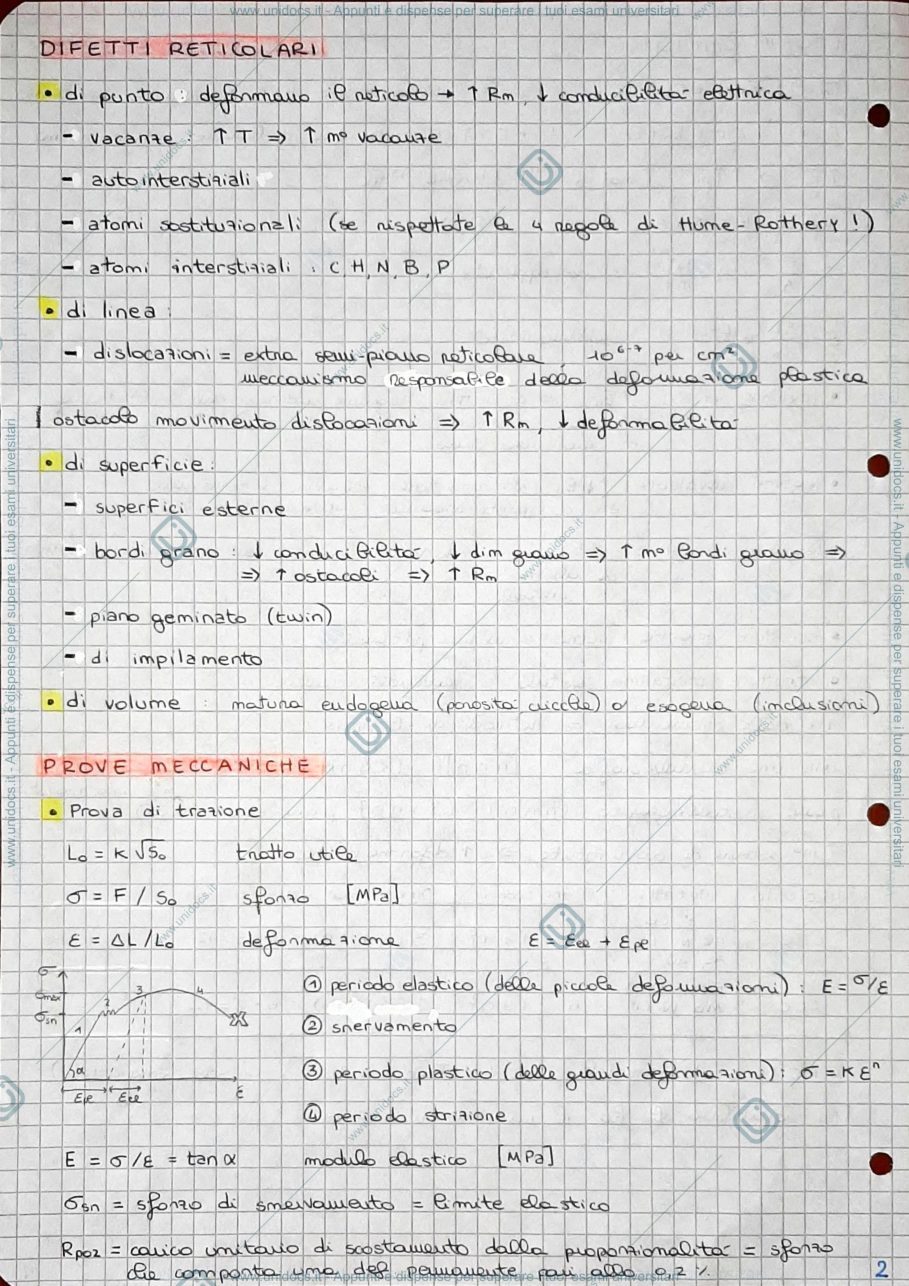 www.unidocs.it - Appunti e dispense per superare i tuoi esami universitari
DIFETTI RETICOLARI
• di punto : deformano il reticolo → ↑ Rm, ↓ conducibilità elettrica
- vacanze : ↑ T ⇒ ↑ n° vacanze
- autointerstiziali
- atomi sostituzionali (se rispettate le 4 regole di Hume-Rothery!)
- atomi interstiziali : C, H, N, B, P
• di linea :
- dislocazioni = extra semi-piano reticolare, 10⁶⁻⁷ per cm²
meccanismo responsabile della deformazione plastica
ostacolo movimento dislocazioni ⇒ ↑ Rm, ↓ deformabilità
• di superficie :
- superfici esterne
- bordi grano : ↓ conducibilità, ↓ dim grano ⇒ ↑ n° bordi grano ⇒
⇒ ↑ ostacoli ⇒ ↑ Rm
- piano geminato (twin)
- di impilamento
• di volume : natura endogena (porosità, cricche) o esogena (inclusioni)
PROVE MECCANICHE
• Prova di trazione
L₀ = K √S₀ tratto utile
σ = F / S₀ sforzo [MPa]
ε = ΔL / L₀ deformazione ε = εel + εpl
σ
σmax
σsn
1 2 3 4
α
ε
① periodo elastico (delle piccole deformazioni) : E = σ/ε
② snervamento
③ periodo plastico (delle grandi deformazioni) : σ = K εⁿ
④ periodo strizione
E = σ/ε = tan α modulo elastico [MPa]
σsn = sforzo di snervamento = limite elastico
Rp02 = carico unitario di scostamento dalla proporzionalità = sforzo
che comporta una def permanente pari allo 0,2 %
www.unidocs.it - Appunti e dispense per superare i tuoi esami universitari
2